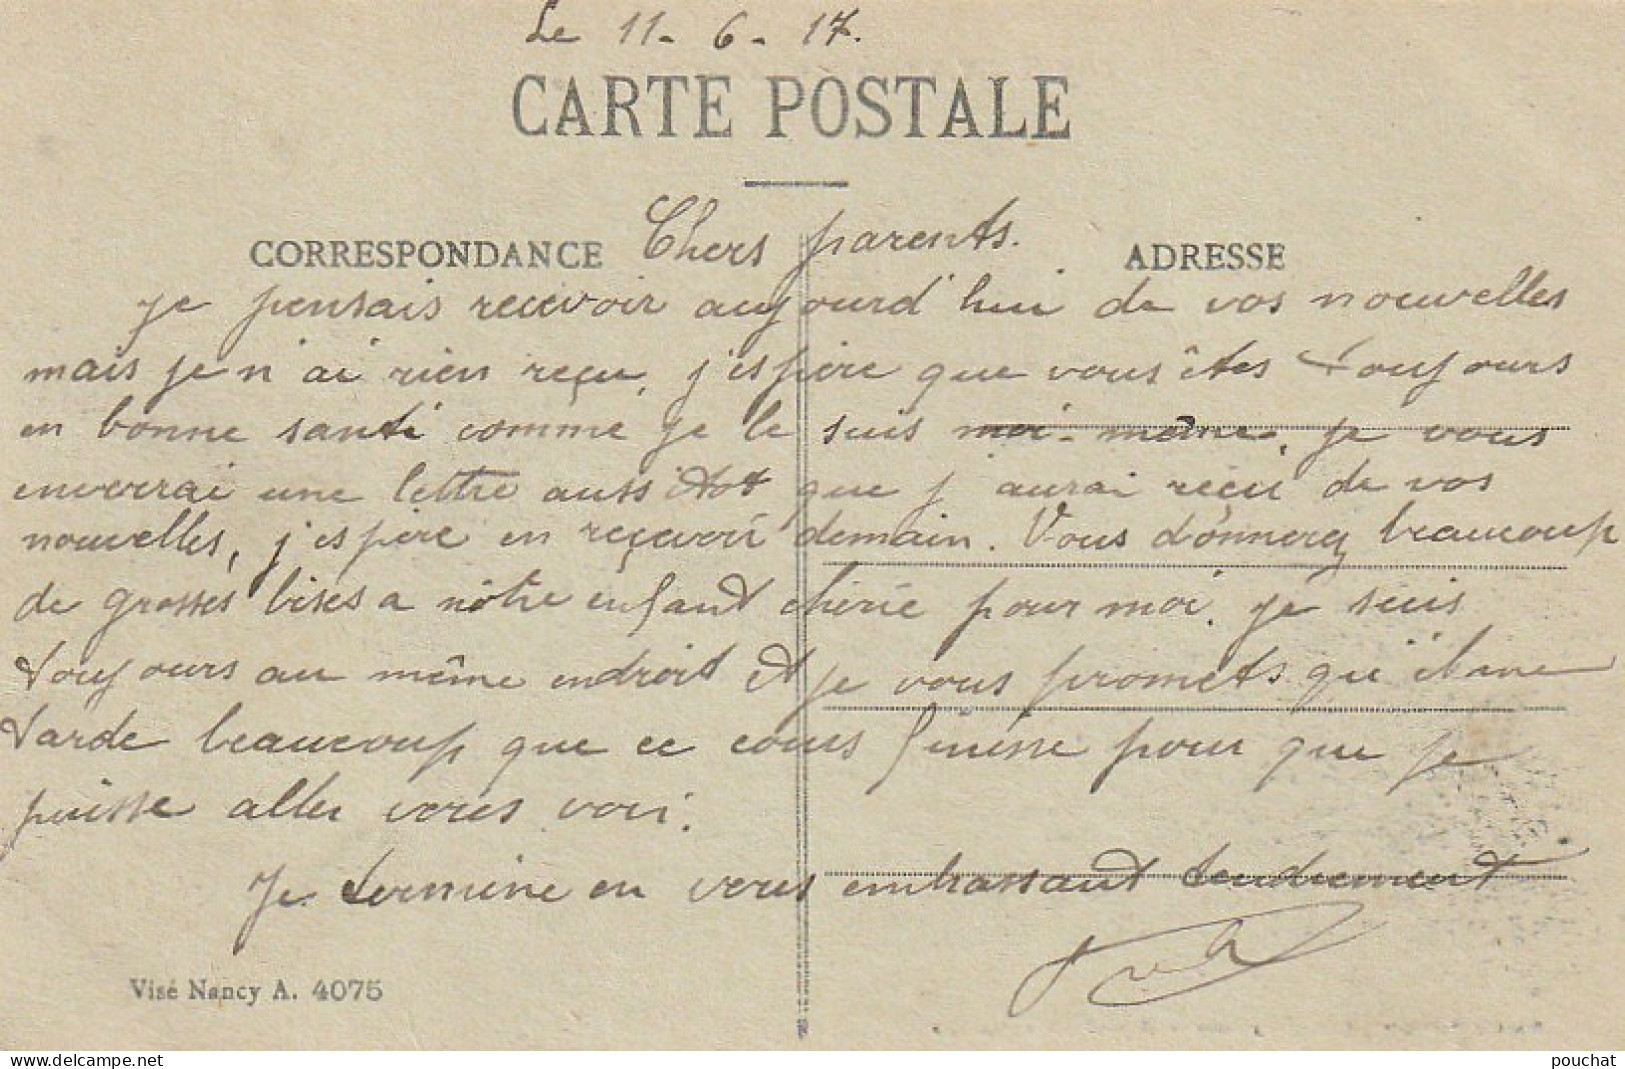 Le 11-6-17.
CARTE POSTALE
CORRESPONDANCE Chers parents. ADRESSE
Je pensais recevoir aujourd'hui de vos nouvelles
mais je n'ai rien reçu, j'espère que vous êtes toujours
en bonne santé comme je le suis moi-même, je vous
enverrai une lettre aussitôt que j'aurai réçu de vos
nouvelles, j'espère en reçevoir demain. Vous donnerez beaucoup
de grosses bises a nôtre enfant chérie pour moi. Je suis
toujours au même endroit et je vous promets qu'il me
tarde beaucoup que ce cours finisse pour que je
puisse aller vous voir.
Je termine en vous embrassant tendrement
Visé Nancy A. 4075
pouchat